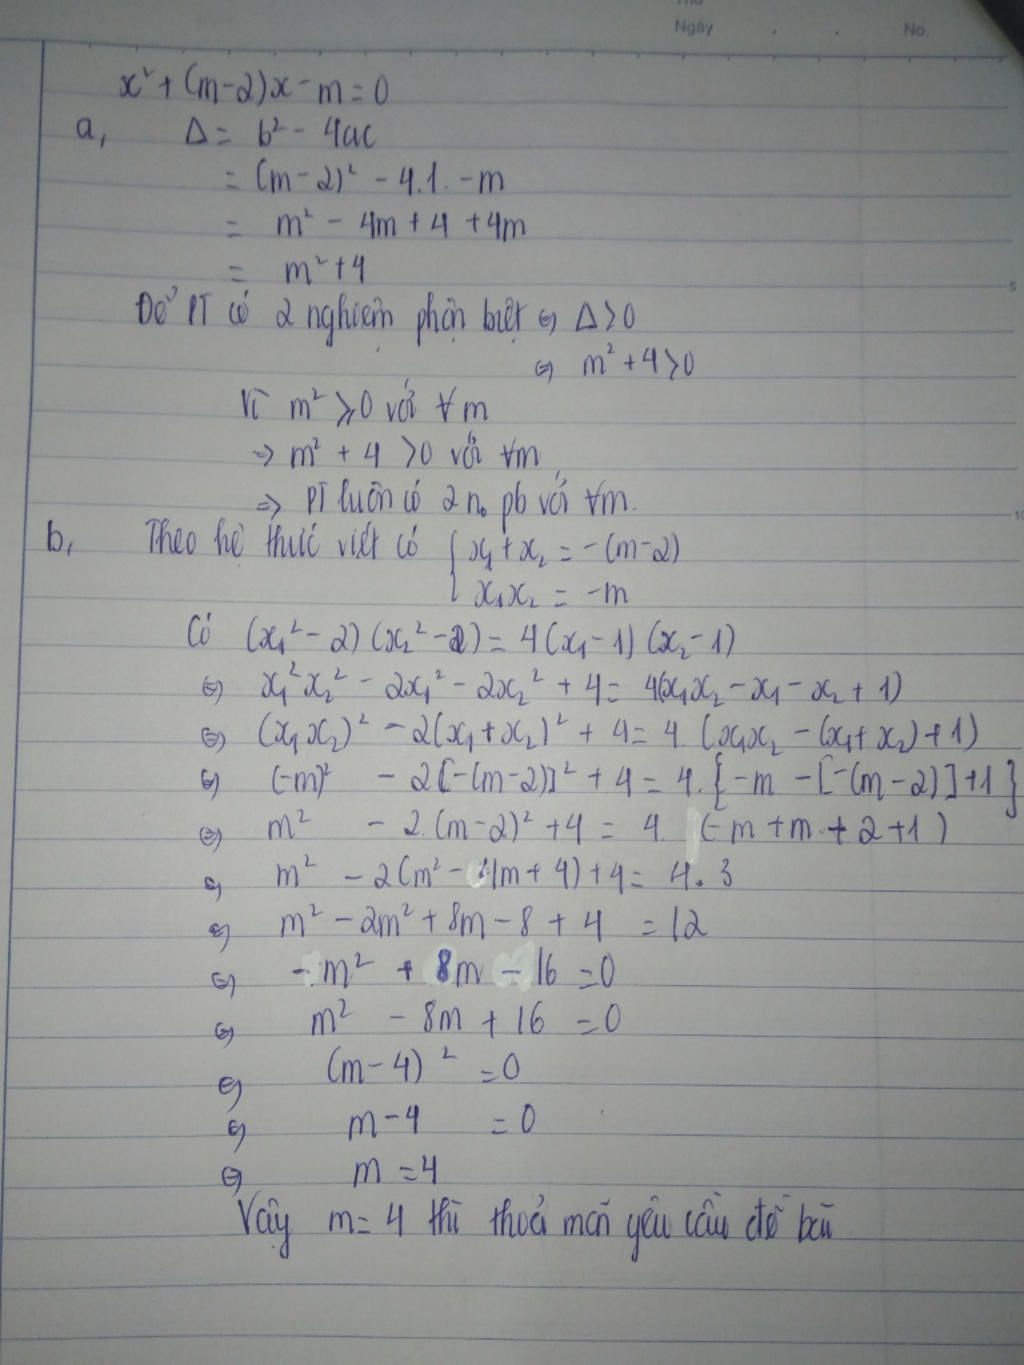 Thứ
Ngày . . No.
x² + (m-2)x - m = 0
a, Δ = b² - 4ac
= (m-2)² - 4.1. -m
= m² - 4m + 4 + 4m
= m² + 4
5
Để PT có 2 nghiệm phân biệt ⇔ Δ > 0
⇔ m² + 4 > 0
Vì m² ⩾ 0 với ∀m
⇒ m² + 4 > 0 với ∀m
⇒ PT luôn có 2 n₀ pb với ∀m.
10
b, Theo hệ thức viét có { x₁ + x₂ = -(m-2)
x₁x₂ = -m
Có (x₁² - 2) (x₂² - 2) = 4(x₁ - 1) (x₂ - 1)
⇔ x₁²x₂² - 2x₁² - 2x₂² + 4 = 4(x₁x₂ - x₁ - x₂ + 1)
⇔ (x₁x₂)² - 2(x₁ + x₂)² + 4 = 4. (x₁x₂ - (x₁ + x₂) + 1)
⇔ (-m)² - 2[-(m-2)]² + 4 = 4. {-m - [-(m-2)] + 1}
⇔ m² - 2.(m-2)² + 4 = 4 (-m + m + 2 + 1)
⇔ m² - 2(m² - 4m + 4) + 4 = 4.3
⇔ m² - 2m² + 8m - 8 + 4 = 12
⇔ - m² + 8m - 16 = 0
⇔ m² - 8m + 16 = 0
⇔ (m-4)² = 0
⇔ m - 4 = 0
⇔ m = 4
Vậy m = 4 thì thoả mãn yêu cầu đề bài